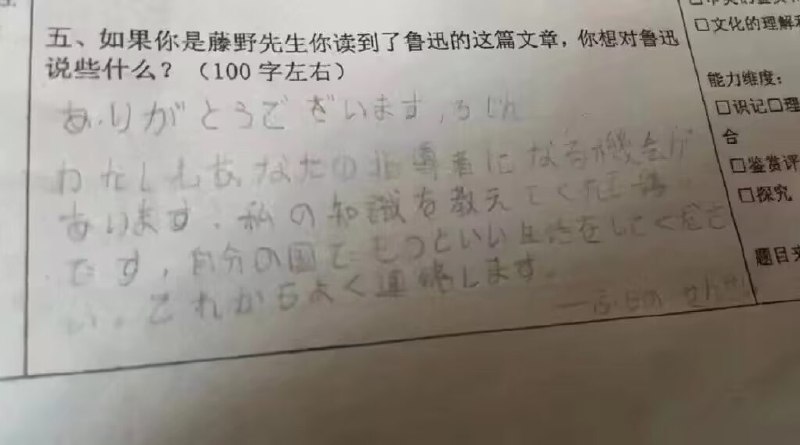 五、如果你是藤野先生你读到了鲁迅的这篇文章，你想对鲁迅
说些什么？（100字左右）
ありがとうでざいます，ろじん
わたしもあなたの指導者になる機会が
あります．私の知識を教えてくだ
です，自分の国でもっといい生活をしてくださ
い。これからよく連絡します。
——ふじの せんせい
□文化的理解
能力维度：
□识记□理
合
□鉴赏评
□探究
题目来